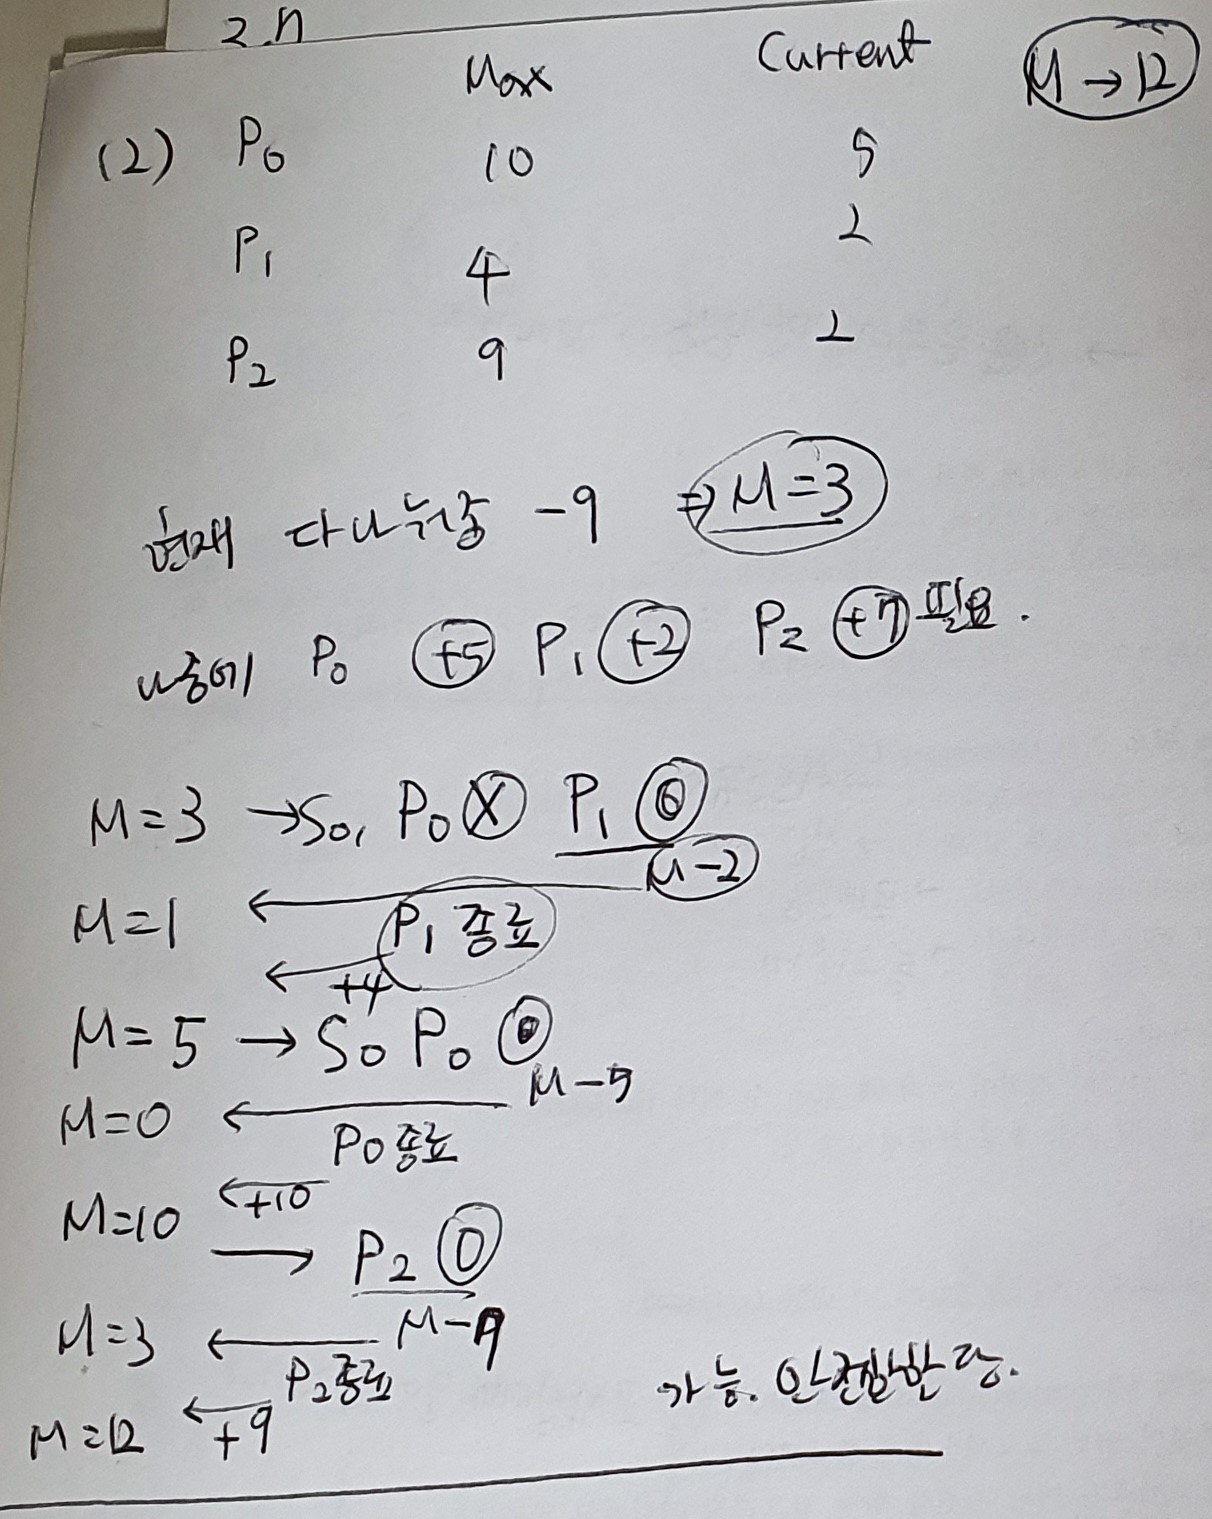 2.n
Max Current M → 12
(2) P0 10 5
P1 4 2
P2 9 2
현재 다 나눠줌 -9 ⇒ M=3
나중에 P0 +5 P1 +2 P2 +7 필요.
M=3 → So, P0 X P1 O
M-2
M=1 ←
P1 종료
← +4
M=5 → So P0 O
M-5
M=0 ←
P0 종료
← +10
M=10 → P2 O
M-7
M=3 ←
P2 종료
M=12 ← +9
가능.